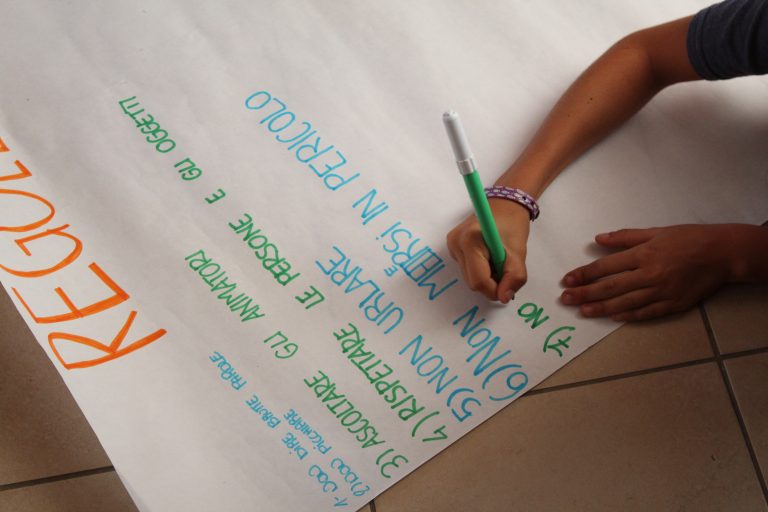 REGOLE
1- NON DIRE BRUTTE PAROLE
2) NON PICCHIARE
3) ASCOLTARE GLI ANIMATORI
4) RISPETTARE LE PERSONE E GLI OGGETTI
5) NON URLARE
6) NON METTERSI IN PERICOLO
7) NO